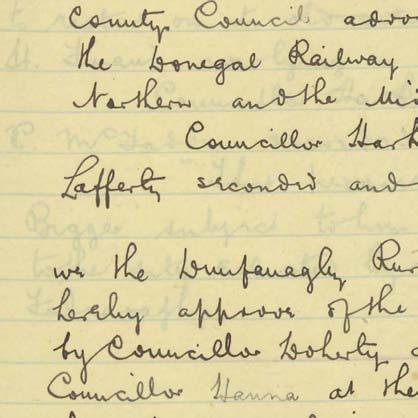 County Council advo
the Donegal Railway
Northern and the Mi
Councillor Hark
Lafferty seconded and
we the Dunfanaghy Rur
hereby approve of the
by Councillor Doherty
Councillor Hanna at the